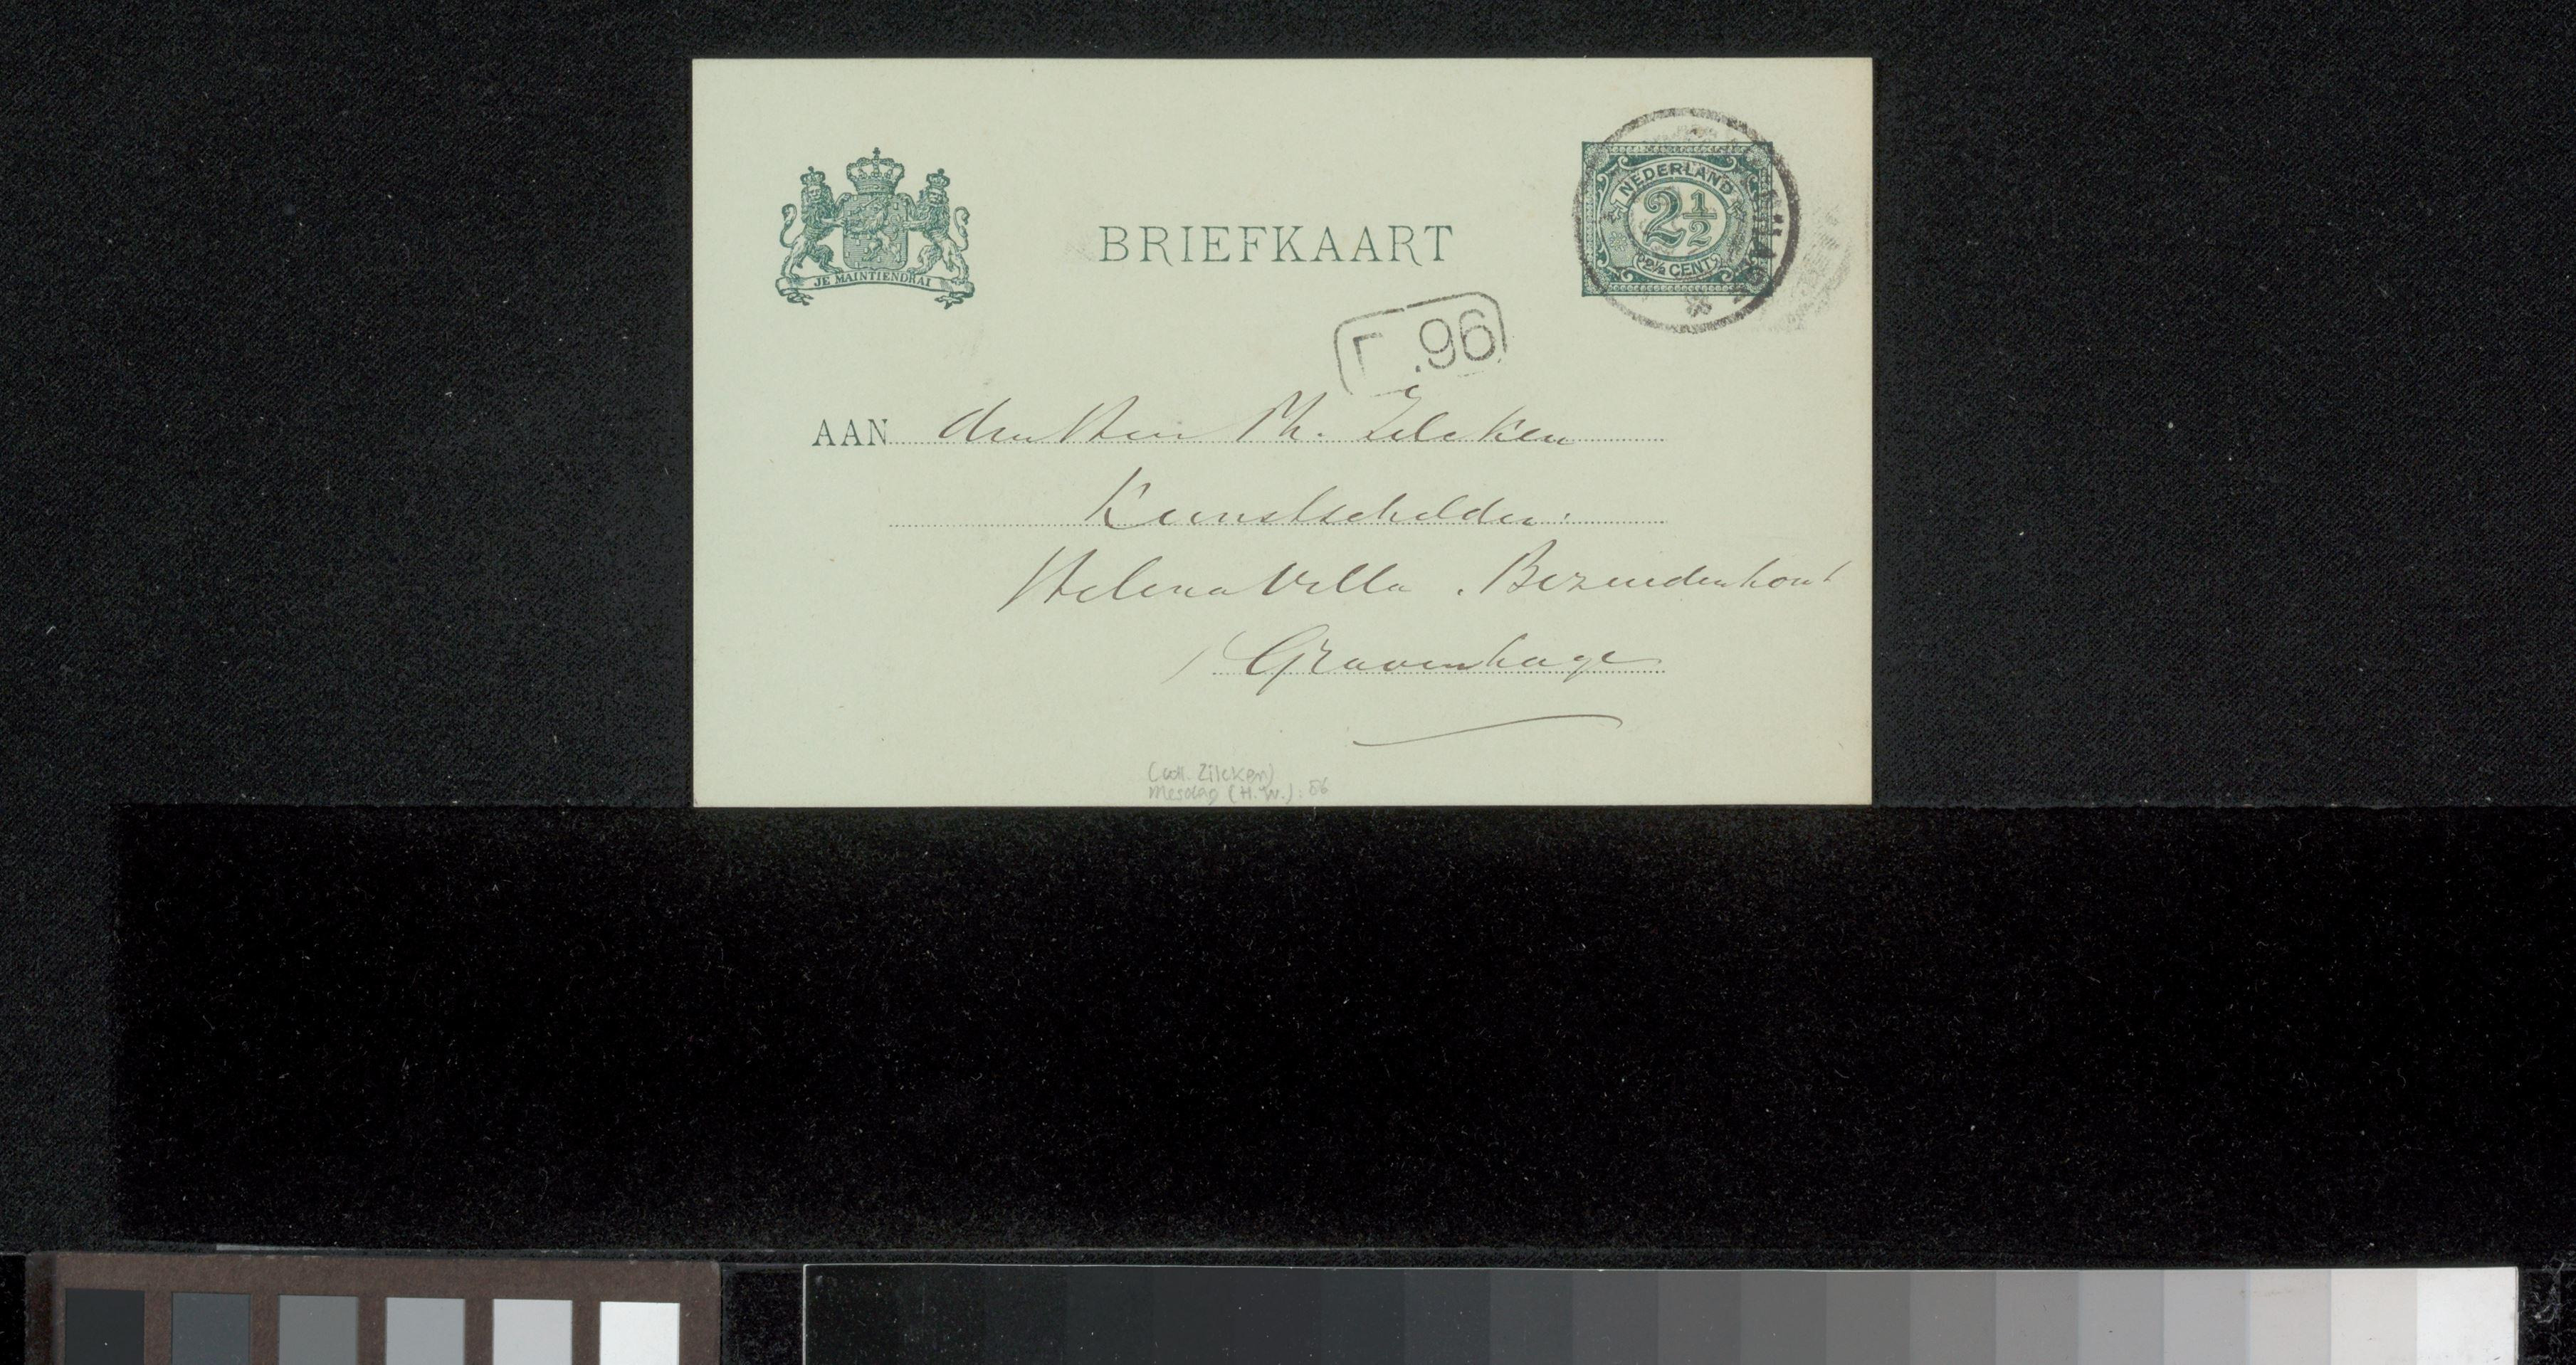 JE MAINTIENDRAI
BRIEFKAART
NEDERLAND
2 1/2
2 1/2 CENT
.96
AAN den Heer Ph. Zilcken
Kunstschilder.
Helena Villa . Bezuidenhout
'Gravenhage
(coll. Zilcken)
Mesdag (H.W.): 86